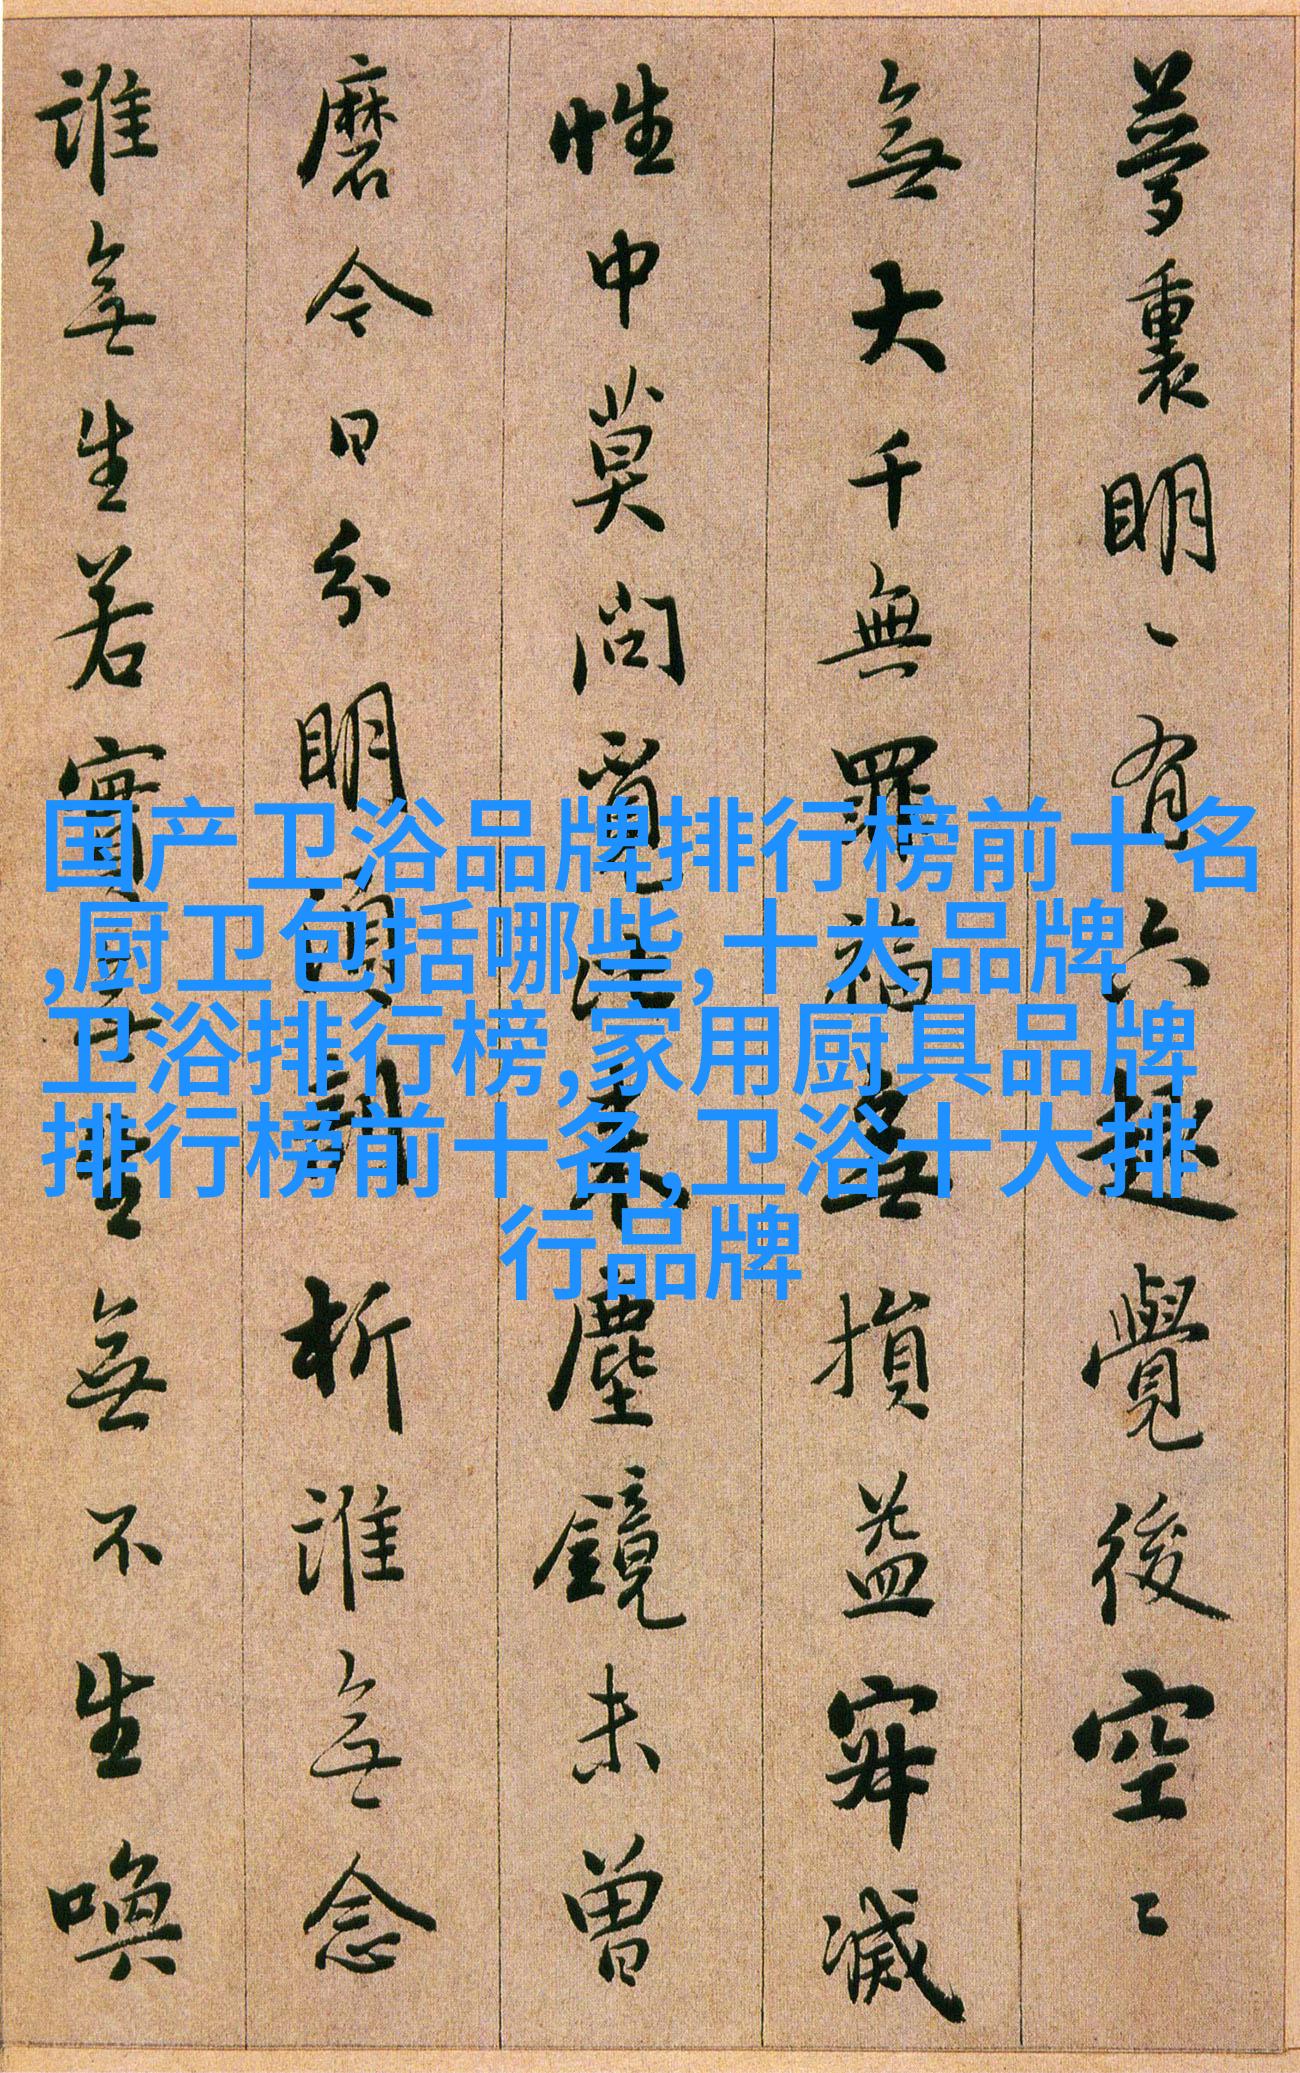 夢裏明〻有六趣覺後空〻
無大千無罪福無損益寂滅
性中莫問覓比来塵鏡未曾
磨今日分明須剖析誰無念
誰無生若實無生無不生喚
国产卫浴品牌排行榜前十名
,厨卫包括哪些,十大品牌
卫浴排行榜,家用厨具品牌
排行榜前十名,卫浴十大排
行品牌